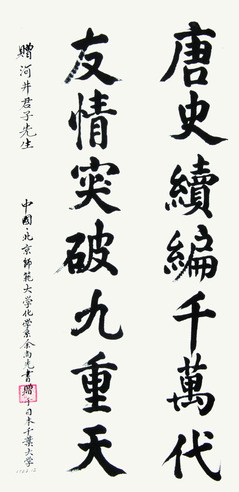 唐史續編千萬代
友情突破九重天
贈河井君子先生
中國北京師範大学化学系余尚先書贈于日本千葉大学